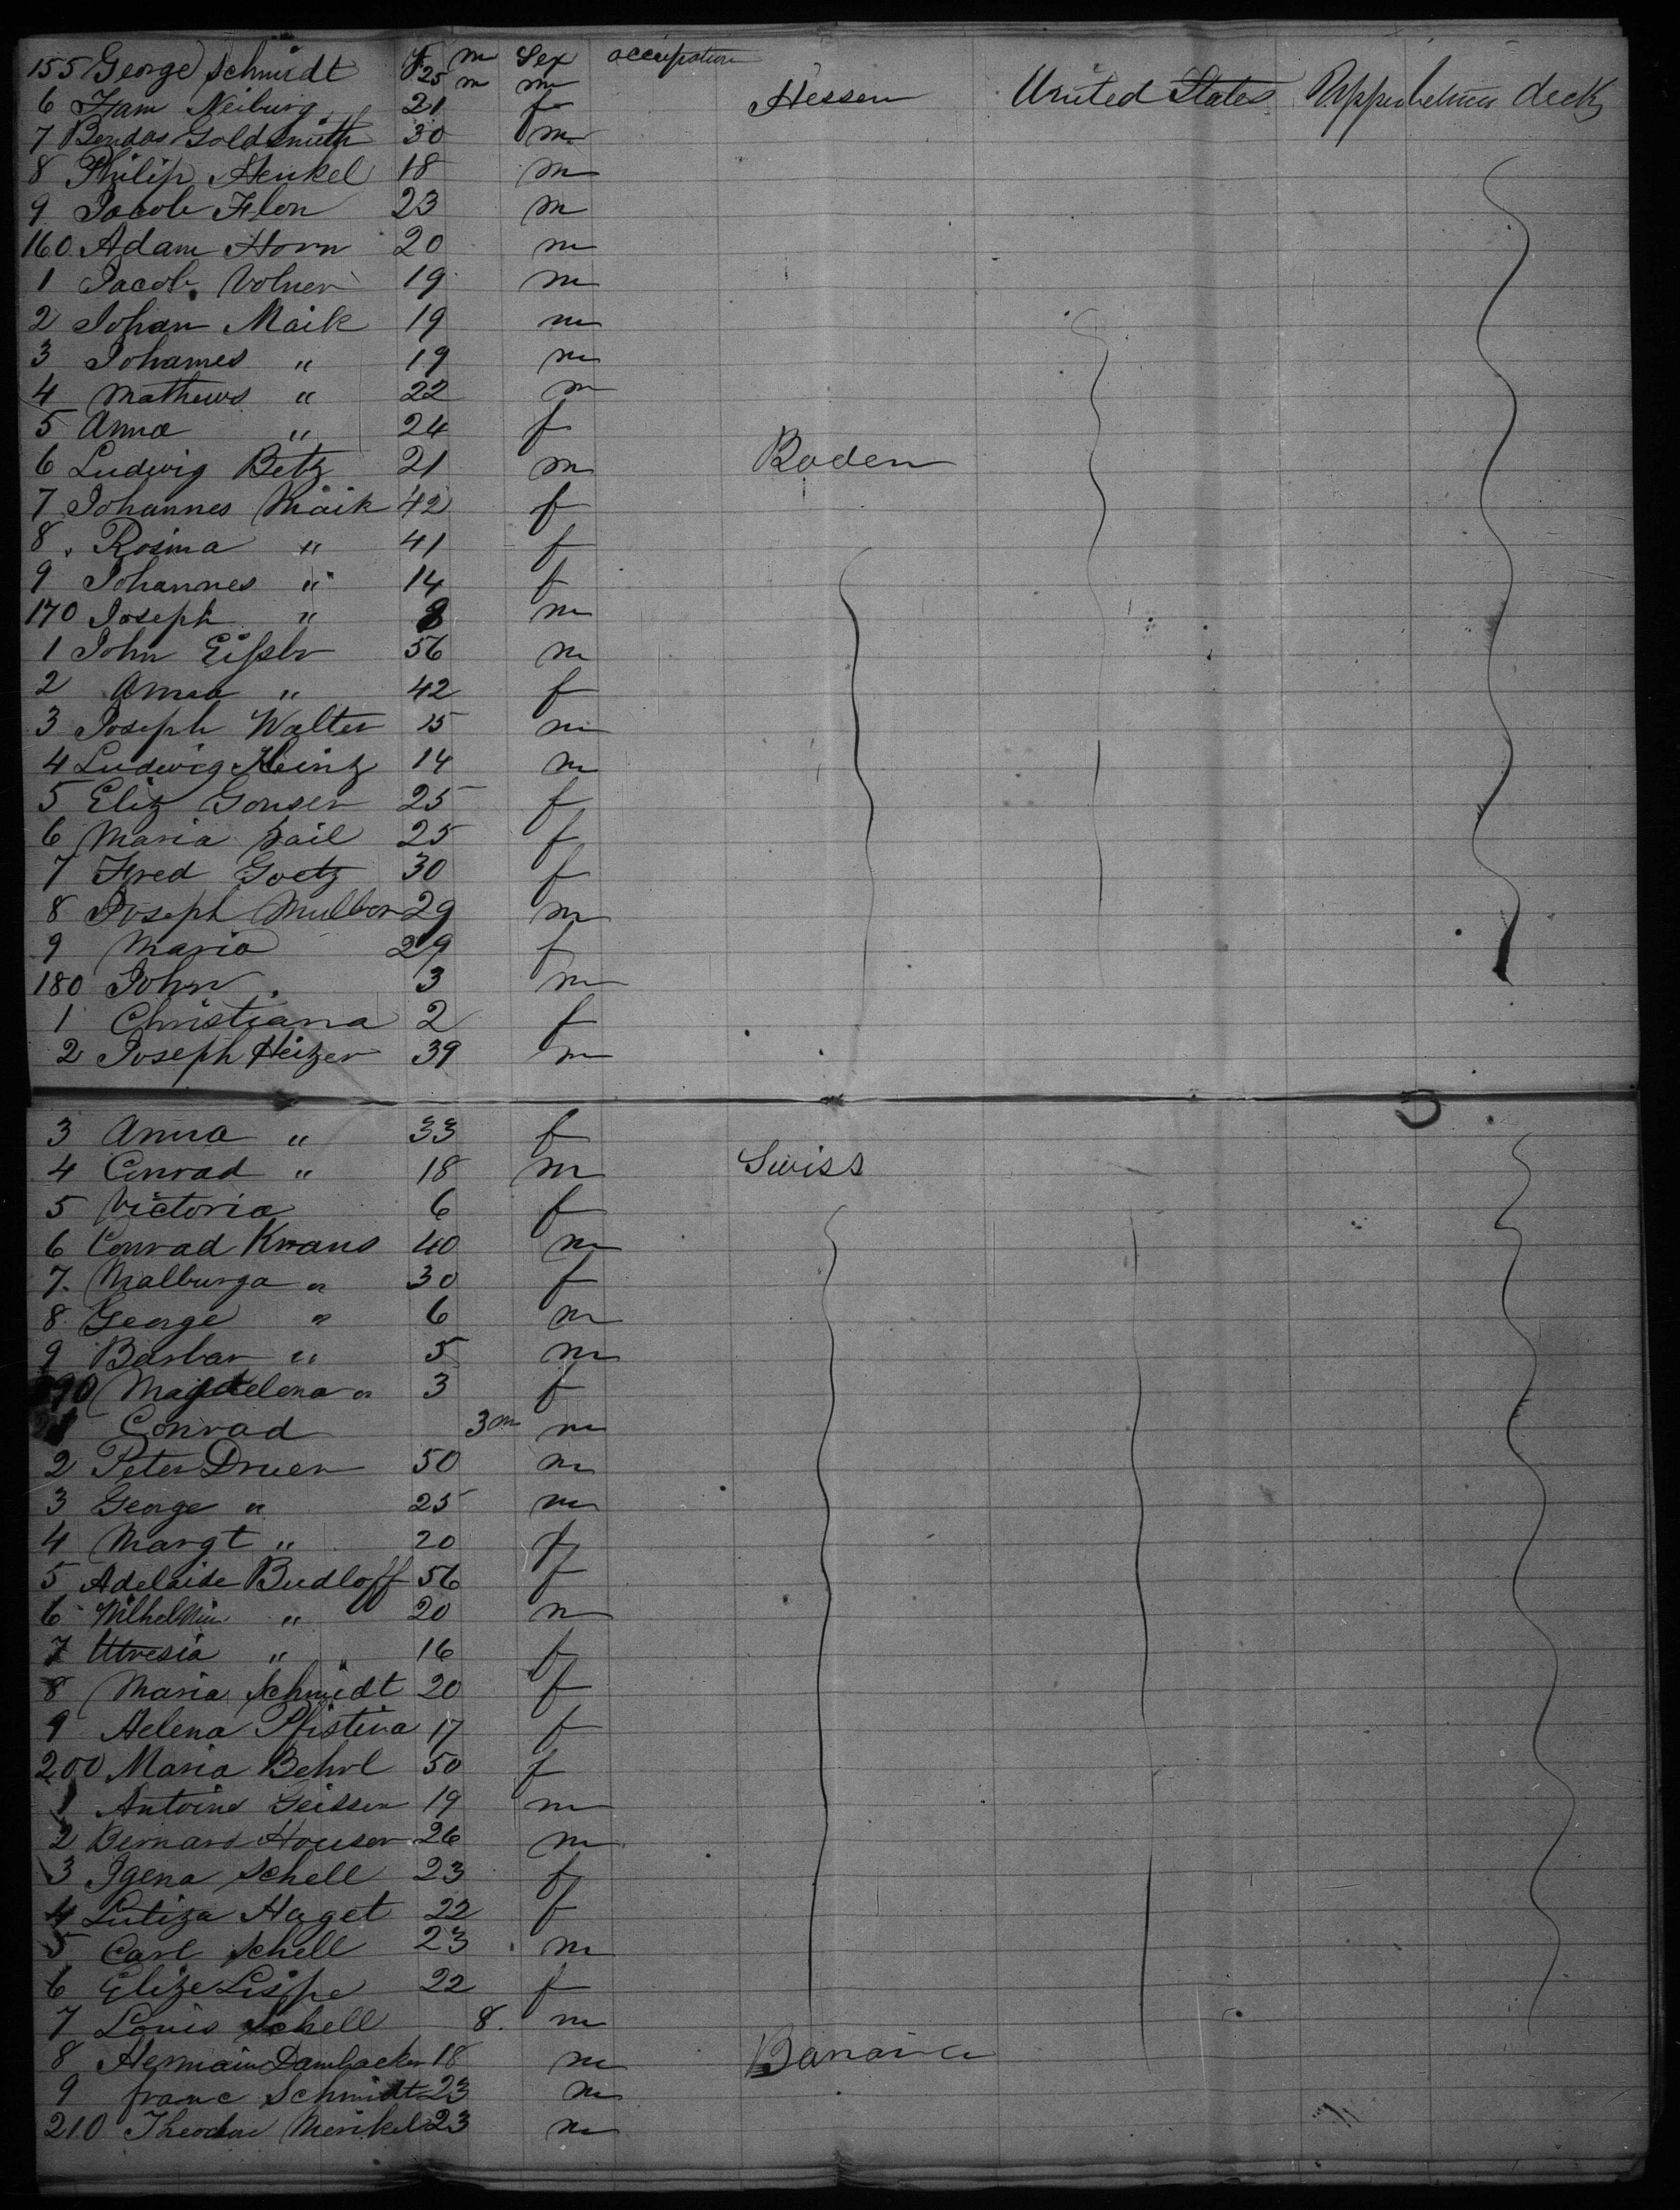 155 George Schmidt Y 25 m m Sex m occupation
6 Fam Neiburg 21 f Hessen United States Upper between deck
7 Bendas Goldsmith 30 m
8 Philip Henkel 18 m
9 Jacob Flon 23 m
160 Adam Horn 20 m
1 Jacob Volner 19 m
2 Johan Maik 19 m
3 Johames " 19 m
4 Mathews " 22 m
5 Anna " 24 f
6 Ludwig Betz 21 m Baden
7 Johannes Maik 42 f
8 Rosina " 41 f
9 Johannes " 14 f
170 Joseph " 8 m
1 John Eissler 56 m
2 Anna " 42 f
3 Joseph Walter 15 m
4 Ludwig Heinz 14 m
5 Eliz Gonser 25 f
6 Maria Sail 25 f
7 Fred Goetz 30 f
8 Joseph Mulbor 29 m
9 Maria 29 f
180 John 3 m
1 Christiana 2 f
2 Joseph Heizer 39 m
3 Anna " 33 f
4 Conrad " 18 m Swiss
5 Victoria 6 f
6 Conrad Kraus 40 m
7 Malburga " 30 f
8 George " 6 m
9 Barbar " 5 m
190 Magdelena " 3 f
1 Conrad 3m m
2 Peter Druer 50 m
3 George " 25 m
4 Margt " 20 f
5 Adelaide Budloff 56 f
6 Wilhelmin " 20 m
7 Utresia " 16 f
8 Maria Schmidt 20 f
9 Helena Pfistira 17 f
200 Maria Behrl 50 f
1 Antoine Geisser 19 m
2 Bernard Houser 26 m
3 Igena Schell 23 f
4 Lutiza Haget 22 f
5 Carl Schell 23 m
6 Elize Lispe 22 f
7 Louis Schell 8 m
8 Hermain Dambacker 18 m Bavaria
9 franc Schmidt 23 m
210 Theodor Merikel 23 m